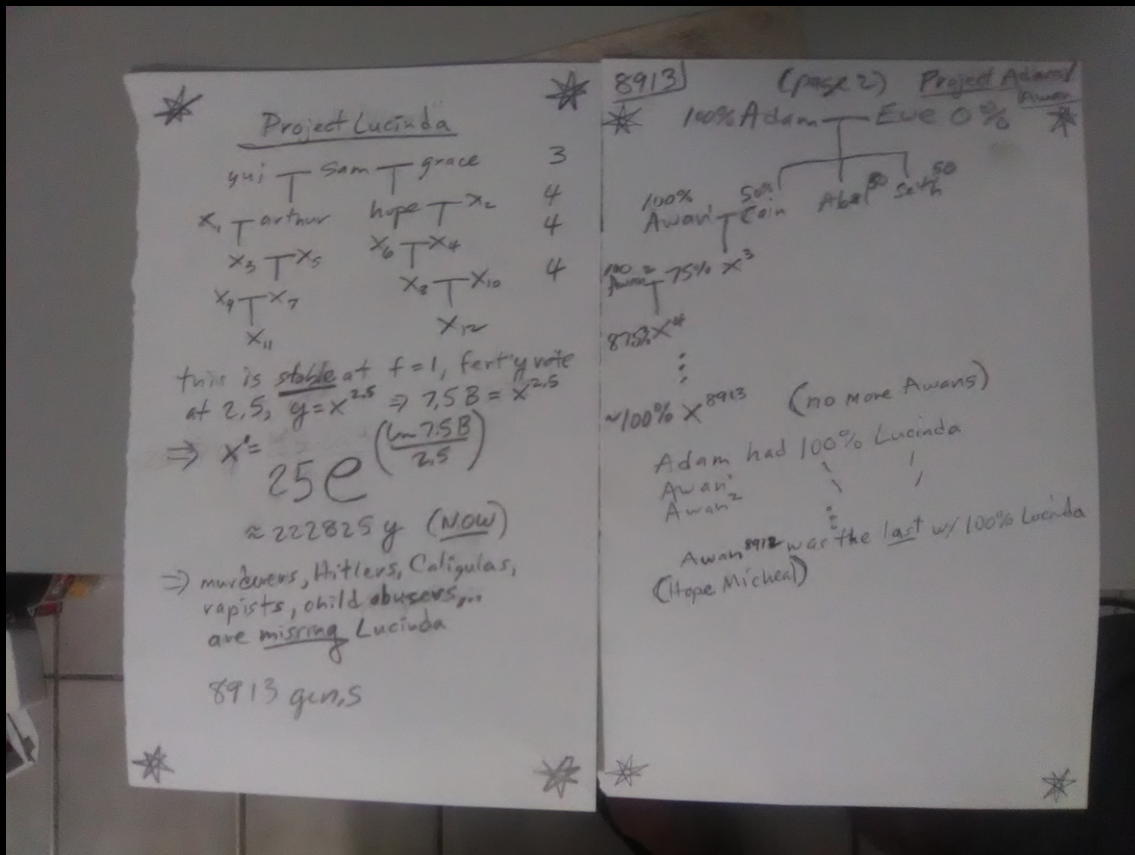 Project Lucinda
yui T sam T grace 3
x₁ T arthur hope T x₂ 4
x₃ T x₅ x₆ T x₄ 4
x₉ T x₇ x₈ T x₁₀ 4
x₁₁ x₁₂
this is stable at f=1, fert'y rate
at 2,5, y=x^2,5 ⇒ 7,5B = x^2,5
⇒ x'=
25e^(ln 7.5B / 2,5)
≈222825y (NOW)
⇒ murderers, Hitlers, Caligulas,
rapists, child abusers,...
are missing Lucinda
8913 gen,s
8913 (page 2) Project Adam/
Awan
100% Adam T Eve 0%
100% 50% 50 50
Awan' T Cain Abel Seth
100 Awan² T 75% x³
87.5% x⁴
~100% x⁸⁹¹³ (no more Awans)
Adam had 100% Lucinda
Awan'
Awan²
Awan⁸⁹¹² was the last w/ 100% Lucinda
(Hope Micheal)